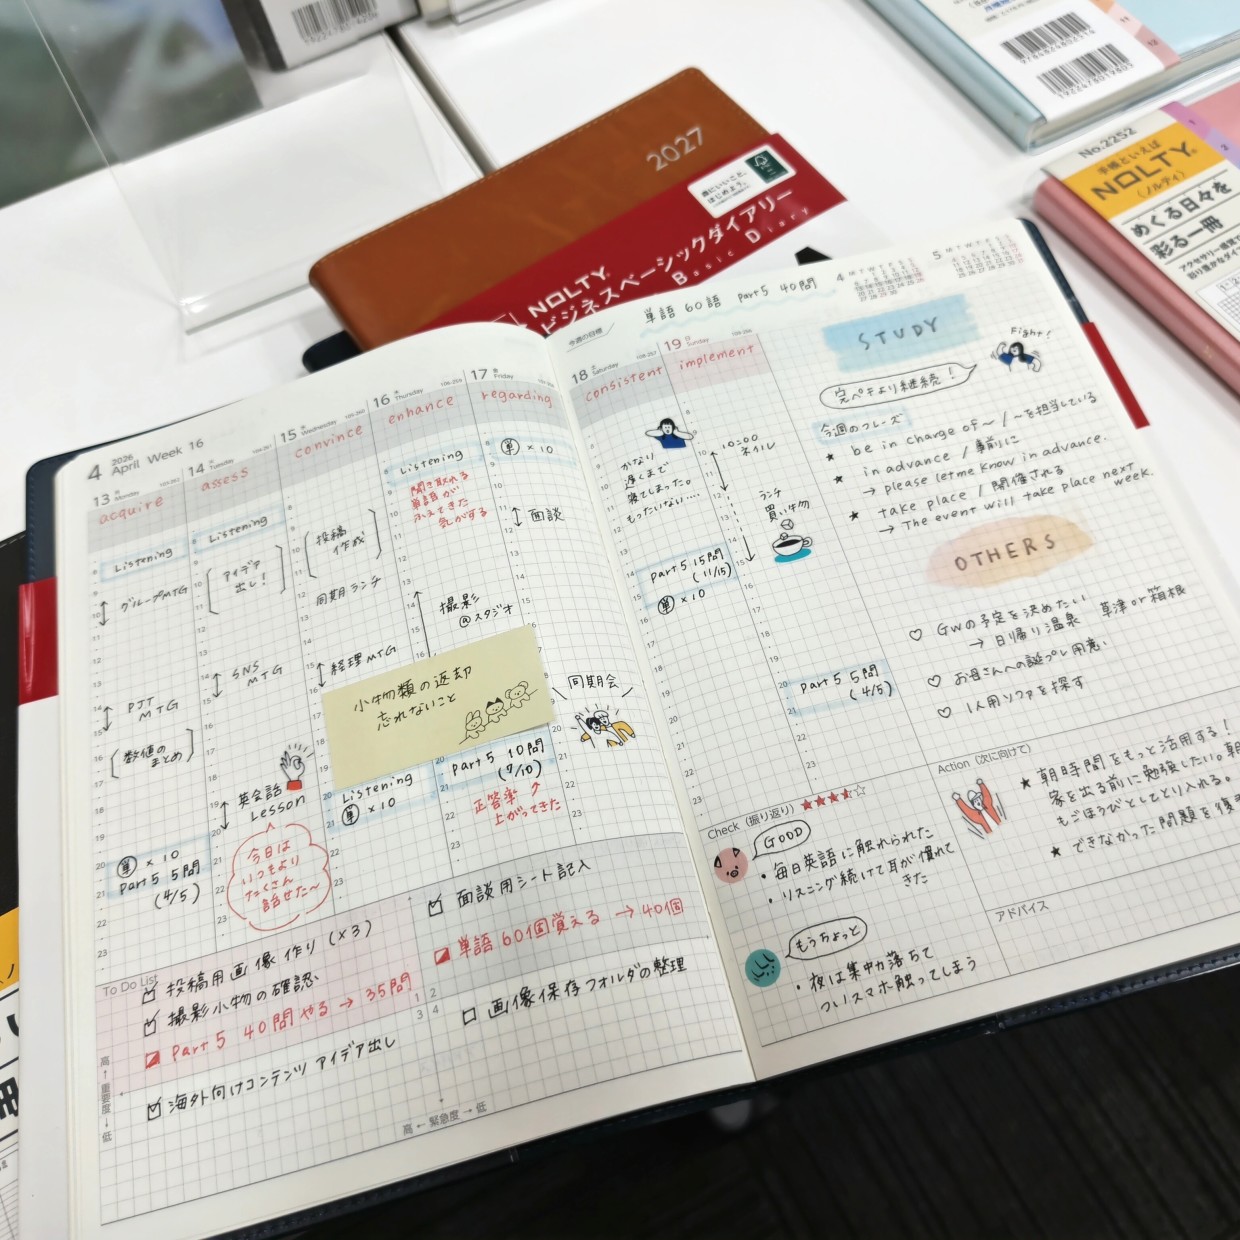 2027
歯にいいこと、
はじめよう。
NOLTY
ビジネスベーシックダイアリー
Basic Diary
9784824802514
1922478019803
No.2252
手帳といえば
NOLTY
(ノルティ)
めくる日々を
彩る一冊
4
2026
April Week 16
13 月 Monday
acquire
Listening
グループMTG
PJT
MTG
数値の
まとめ
単 ×10
Part5 5問
(4/5)
14 火 Tuesday
assess
Listening
アイデア
出し!
SNS
MTG
英会話
Lesson
今日は
いつもより
たくさん
話せた〜
15 水 Wednesday
convince
投稿
作成
同期ランチ
経理MTG
Listening
単 ×10
16 木 Thursday
enhance
Listening
聞き取れる
単語が
ふえてきた
気がする
撮影
@スタジオ
小物類の返却
忘れないこと
Part5 10問
(7/10)
正答率 ↗
上がってきた
17 金 Friday
regarding
単 ×10
面談
同期会
To Do List
投稿用画像作り(×3)
撮影小物の確認
Part5 40問やる → 35問
海外向けコンテンツ アイデア出し
面談用シート記入
単語60個覚える → 40個
画像保存フォルダの整理
1 2
3 4
高 ← 重要度 → 低
高 ← 緊急度 → 低
今週の目標
単語 60語 Part5 40問
18 土 Saturday
consistent
かなり
遅くまで
寝てしまった。
もったいない....
Part5 15問
(11/15)
単 ×10
19 日 Sunday
implement
10:00
ネイル
ランチ
買い物
Part5 5問
(4/5)
4
5
STUDY
Fight!
完ペキより継続!
今週のフレーズ
★ be in charge of〜/〜を担当している
★ in advance / 事前に
→ please let me know in advance.
★ take place / 開催される
→ The event will take place next
week.
OTHERS
♡ GWの予定を決めたい
→ 日帰り温泉 草津 or 箱根
♡ お母さんへの誕プレ用意
♡ 1人用ソファを探す
Check (振り返り) ★★★★☆
GOOD
・毎日英語に触れられた
・リスニング続けて耳が慣れて
きた
もうちょっと
・夜は集中力落ちて
ついスマホ触ってしまう
Action (次に向けて)
★ 朝時間をもっと活用する!
家を出る前に勉強したい。朝
もごほうびとしてとり入れる。
★ できなかった問題を復
アドバイス